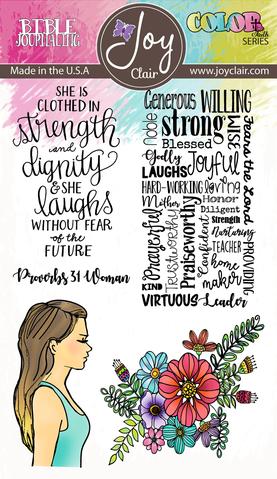 BIBLE
JOURNALING
Joy
Clair
COLOR
Faith
SERIES
Made in the U.S.A
www.joyclair.com
SHE IS
CLOTHED IN
strength
and
dignity
& SHE
laughs
WITHOUT FEAR
OF the
FUTURE
Proverbs 31 Woman
Generous WILLING
Noble
strong
WISE
Fears the Lord
Blessed
Godly
Joyful
LAUGHS
HARD-WORKING loving
Mother
Honor
Diligent
Strength
Nurturing
PROVIDING
KIND
Prayerful
Trustworthy
Praiseworthy
Confident
TEACHER
home
maker
VIRTUOUS Leader